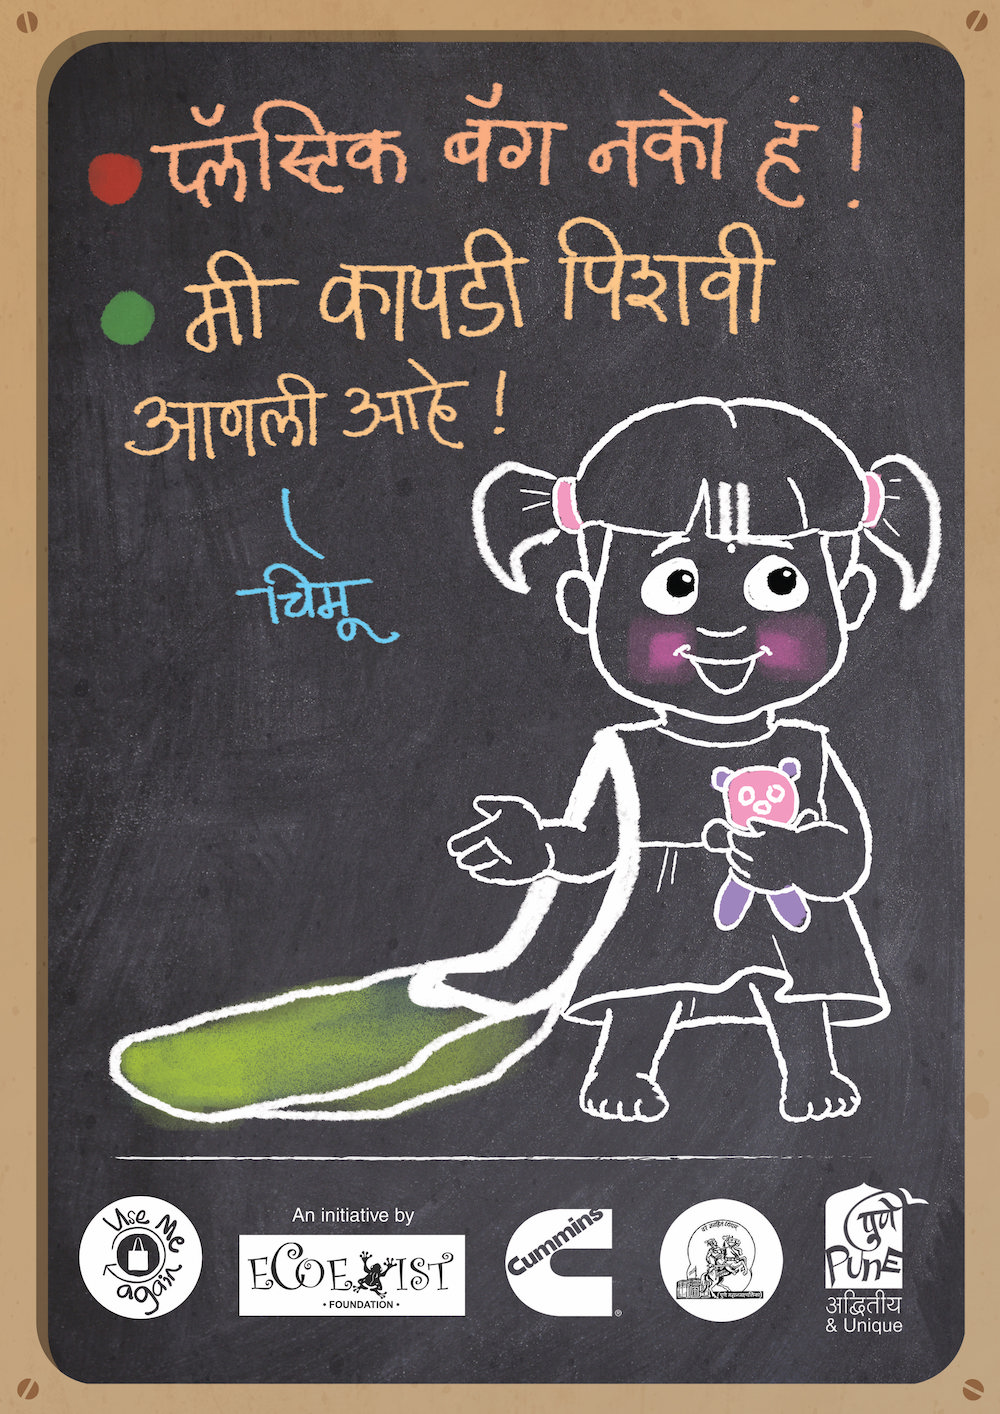 प्लॅस्टिक बॅग नको हं !
मी कापडी पिशवी
आणली आहे !
चिमू
Use Me again
An initiative by
ECOEXIST
• FOUNDATION •
Cummins
®
पुणे
PUNE
अद्वितीय
& Unique